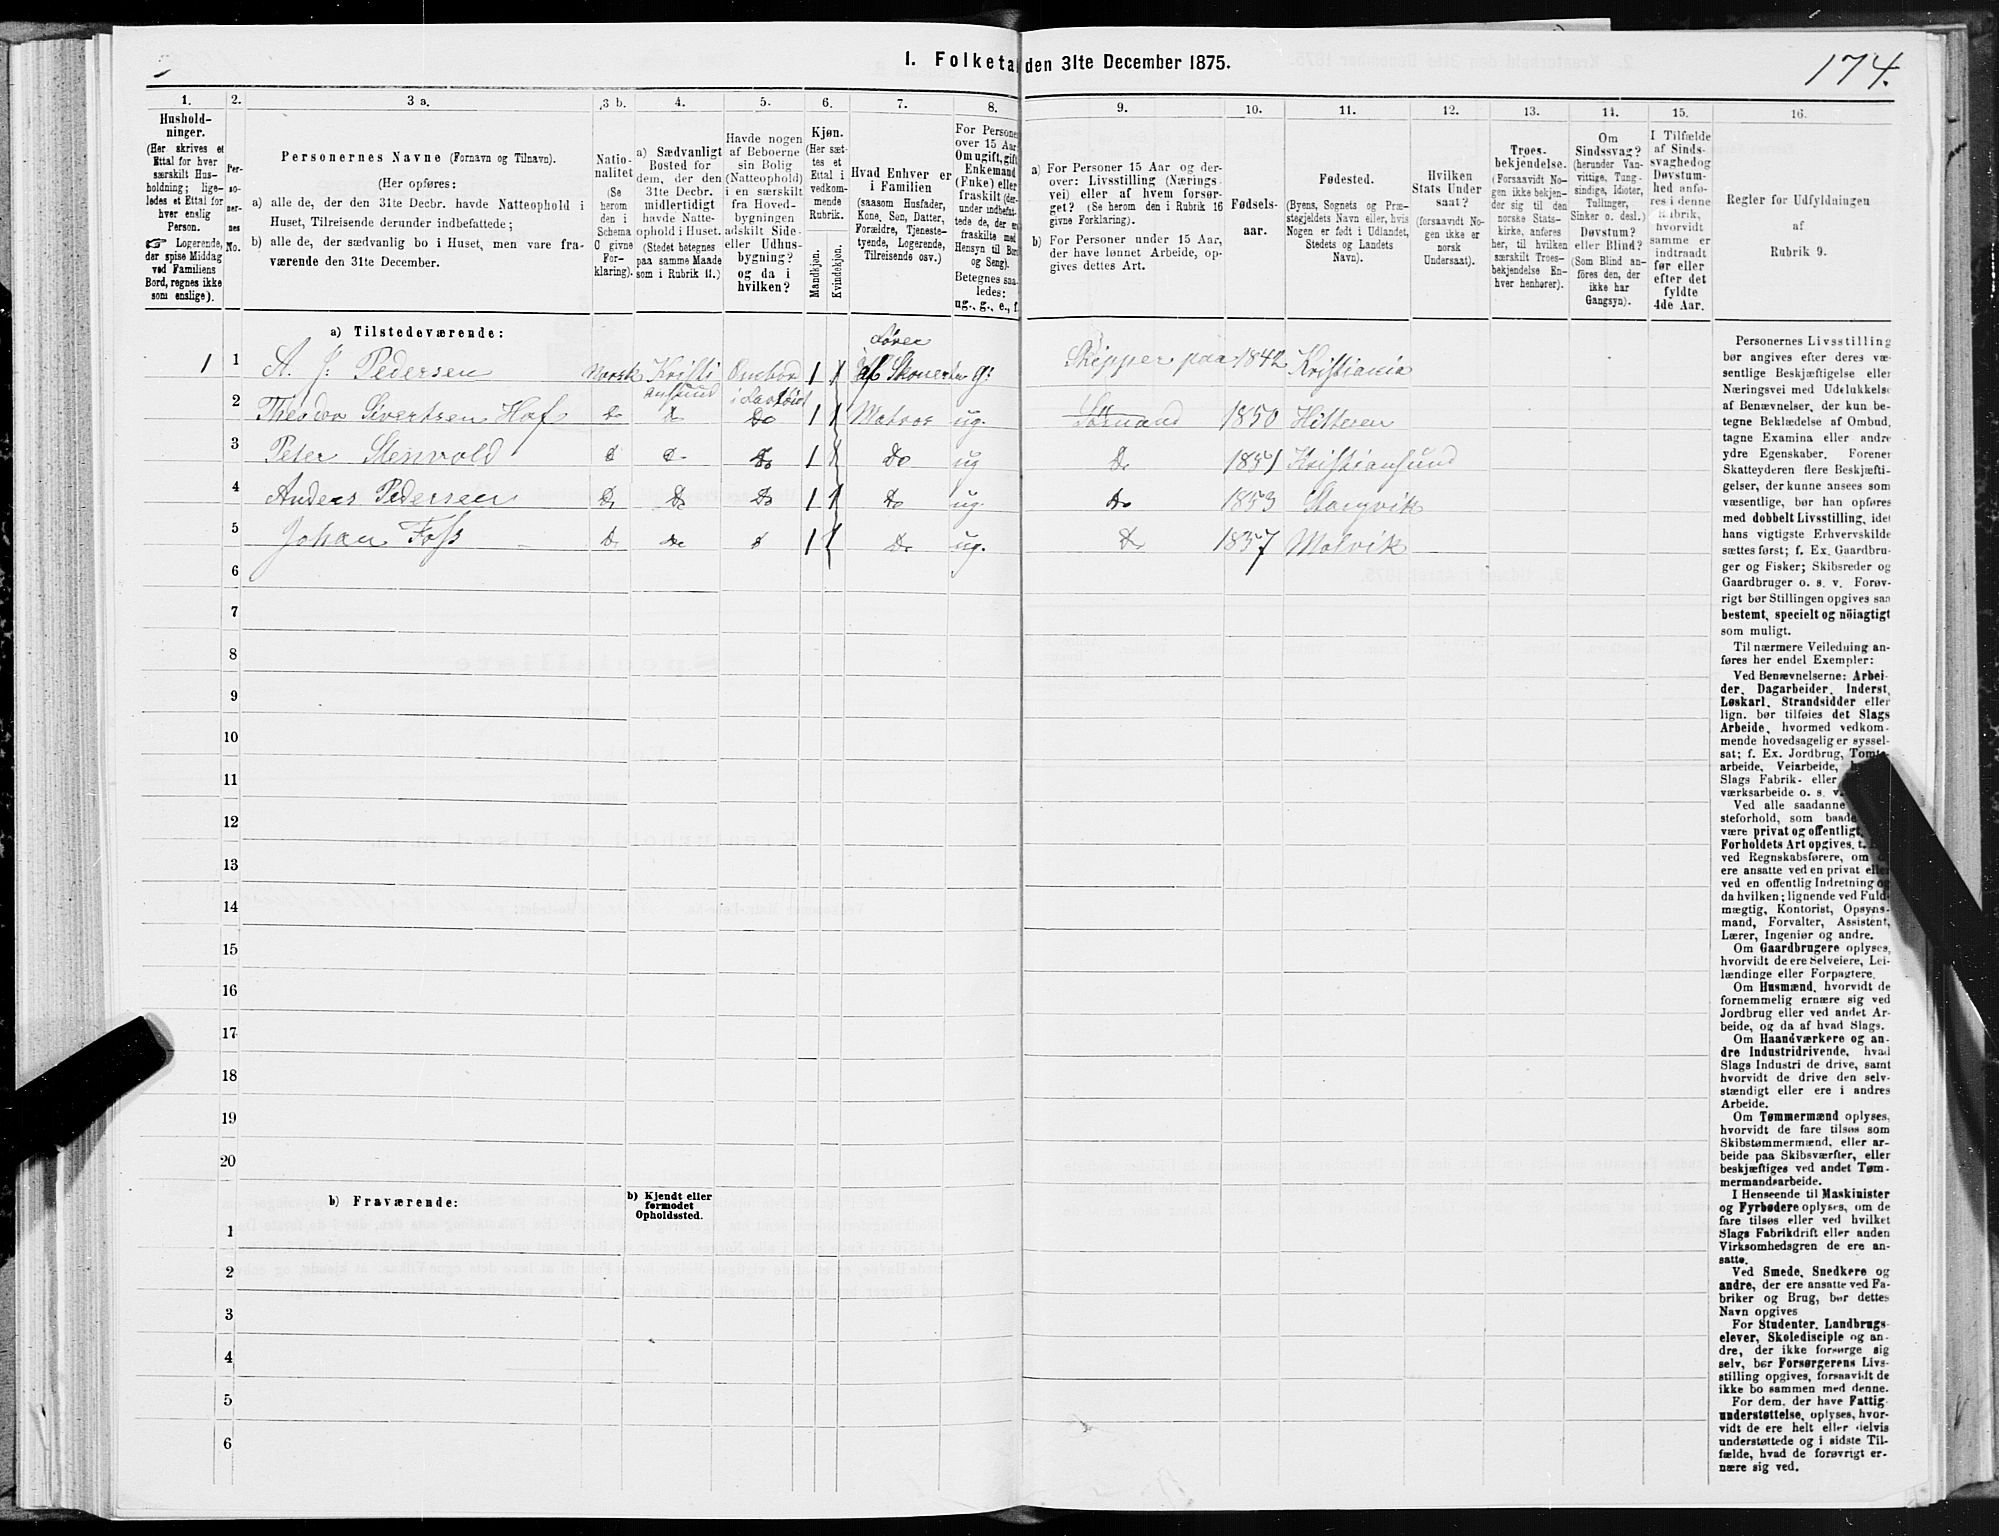 174.
I. Folketa
den 31te December 1875.
1. 2. 3 a. 3 b. 4. 5. 6. 7. 8. 9. 10. 11. 12. 13. 14. 15. 16.
Hushold-
ninger.
(Her skrives et
Ettal for hver
særskilt Hus-
holdning; lige-
ledes et Ettal for
hver enslig
Person.
☞ Logerende,
der spise Middag
ved Familiens
Bord, regnes ikke
som enslige).
Per-
so-
ner-
nes
No.
Personernes Navne (Fornavn og Tilnavn).
(Her opføres:
a) alle de, der den 31te Decbr. havde Natteophold i
Huset, Tilreisende derunder indbefattede;
b) alle de, der sædvanlig bo i Huset, men vare fra-
værende den 31te December.
Natio-
nalitet
(Se
herom
den i
Schema
C givne
For-
klaring).
a) Sædvanligt
Bosted for
dem, der den
31te Decbr.
midlertidigt
havde Natte-
ophold i Huset.
(Stedet betegnes
paa samme Maade
som i Rubrik 11.)
Havde nogen
af Beboerne
sin Bolig
(Natteophold)
i en særskilt
fra Hoved-
bygningen
adskilt Side-
eller Udhus-
bygning?
og da i
hvilken?
Kjøn.
(Her sæt-
tes et
Ettal i
vedkom-
mende
Rubrik.
Mandkjøn.
Kvindekjøn.
Hvad Enhver er
i Familien
(saasom Husfader,
Kone, Søn, Datter,
Forældre, Tjeneste-
tyende, Logerende,
Tilreisende osv.)
For Persone
over 15 Aar
Om ugift, gift
Enkemand
(Enke) eller
fraskilt (der-
under indbefat-
tede de, der er
fraskilte med
Hensyn til Bo
og Seng).
Betegnes saa-
ledes:
ug., g., e., f.
a) For Personer 15 Aar og der-
over: Livsstilling (Nærings-
vei) eller af hvem forsør-
get? (Se herom den i Rubrik 16
givne Forklaring).
b) For Personer under 15 Aar,
der have lønnet Arbeide, op-
gives dettes Art.
Fødsels-
aar.
Fødested.
(Byens, Sognets og Præ-
stegjeldets Navn eller, hvis
Nogen er født i Udlandet,
Stedets og Landets
Navn).
Hvilken
Stats Under
saat?
(forsaavidt No-
gen ikke er
norsk
Undersaat).
Troes-
bekjendelse.
(Forsaavidt No-
gen ikke bekjen-
der sig til den
norske Stats-
kirke, anføres
her, til hvilken
særskilt Troes-
bekjendelse En-
hver henhører).
Om
Sindssvag?
(herunder Van-
vittige, Tung-
sindige, Idioter,
Tullinger,
Sinker o. desl.)
Døvstum?
eller Blind?
(Som Blind an-
føres den, der
ikke har
Gangsyn).
I Tilfælde
af Sinds-
svaghed og
Døvstum-
hed anfø-
res i denne
Rubrik,
hvorvidt
samme er
indtraadt
før eller
efter det
fyldte
4de Aar.
Regler for Udfyldningen
af
Rubrik 9.
a) Tilstedeværende:
1 1 A. J. Pedersen Norsk Kristi ansund Ombord 1 Fører af Skonerten g: Skipper paa 1842 Kristiania
2 Theodor Sivertsen Hof Do Do Do 1 Matros ug. Sømand 1850 Hitteren
3 Peter Stenvold Do Do Do 1 Do ug Do 1851 Kristiansund
4 Anders Pedersen Do Do Do 1 Do ug. Do 1853 Stangvik
5 Johan Foss Do Do Do 1 Do ug. Do 1857 Malvik
6
7
8
9
10
11
12
13
14
15
16
17
18
19
20
b) Fraværende:
b) Kjendt eller
formodet
Opholdssted.
1
2
3
4
5
6
Personernes Livsstilling
bør angives efter deres væ-
sentlige Beskjæftigelse eller
Næringsvei med Udelukkelse
af Benævnelser, der kun be-
tegne Beklædelse af Ombud,
tagne Examina eller andre
ydre Egenskaber. Forener
Skatteyderen flere Beskjæfti-
gelser, der kunne ansees som
væsentlige, bør han opføres
med dobbelt Livsstilling, idet
hans vigtigste Erhvervskilde
sættes først; f. Ex. Gaardbru-
ger og Fisker; Skibsreder og
Gaardbruger o. s. v. Forøv-
rigt bør Stillingen opgives saa
bestemt, specielt og nöiagtigt
som muligt.
Til nærmere Veiledning an-
føres her endel Exempler:
Ved Benævnelserne: Arbei-
der, Dagarbeider, Inderst,
Løskarl, Strandsidder eller
lign. bør tilføies det Slags
Arbeide, hvormed vedkom-
mende hovedsagelig er syssel-
sat; f. Ex. Jordbrug, Tomte-
arbeide, Veiarbeide,
Slags Fabrik- eller
værksarbeide o. s. v.
Ved alle saadanne
steforhold, som baade
være privat og offentligt,
Forholdets Art opgives,
ved Regnskabsførere, om
ere ansatte ved en privat eller
ved en offentlig Indretning og
da hvilken; lignende ved Fuld-
mægtig, Kontorist, Opsyns-
mand, Forvalter, Assistent,
Lærer, Ingeniør og andre.
Om Gaardbrugere oplyses,
hvorvidt de ere Selveiere, Lei-
lændinge eller Forpagtere.
Om Husmænd, hvorvidt de
fornemmelig ernære sig ved
Jordbrug eller ved andet Ar-
beide, og da af hvad Slags.
Om Haandværkere og an-
dre Industridrivende, hvad
Slags Industri de drive, samt
hvorvidt de drive den selv-
stændigt eller ere i andres
Arbeide.
Om Tømmermænd oplyses,
hvorvidt de fare tilsøs som
Skibstømmermænd, eller ar-
beide paa Skibsværfter, eller
beskjæftiges ved andet Tøm-
mermandsarbeide.
I Henseende til Maskinister
og Fyrbødere oplyses, om de
fare tilsøs eller ved hvilket
Slags Fabrikdrift eller anden
Virksomhedsgren de ere an-
satte.
Ved Smede, Snedkere og
andre, der ere ansatte ved Fa-
briker og Brug, bør dettes
Navn opgives
For Studenter, Landbrugs-
elever, Skoledisciple og an-
dre, der ikke forsørge sig
selv, bør Forsørgerens Livs-
stilling opgives, forsaavidt de
ikke bo sammen med denne.
For dem, der have Fattig-
understøttelse, oplyses, hvor-
vidt de ere helt eller delvis
understøttede og i sidste Til-
fælde, hvad de forøvrigt er-
nære sig ved.